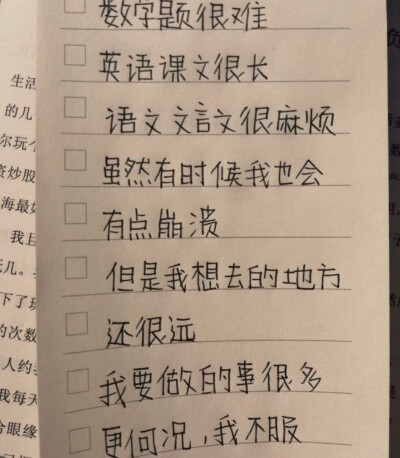 数学题很难
英语课文很长
语文文言文很麻烦
虽然有时候我也会
有点崩溃
但是我想去的地方
还很远
我要做的事很多
更何况，我不服
生活
的几
尔玩个
资炒股
海最如
我且
玩几。
下了玩
的次数
人约
我每天
合眼缘